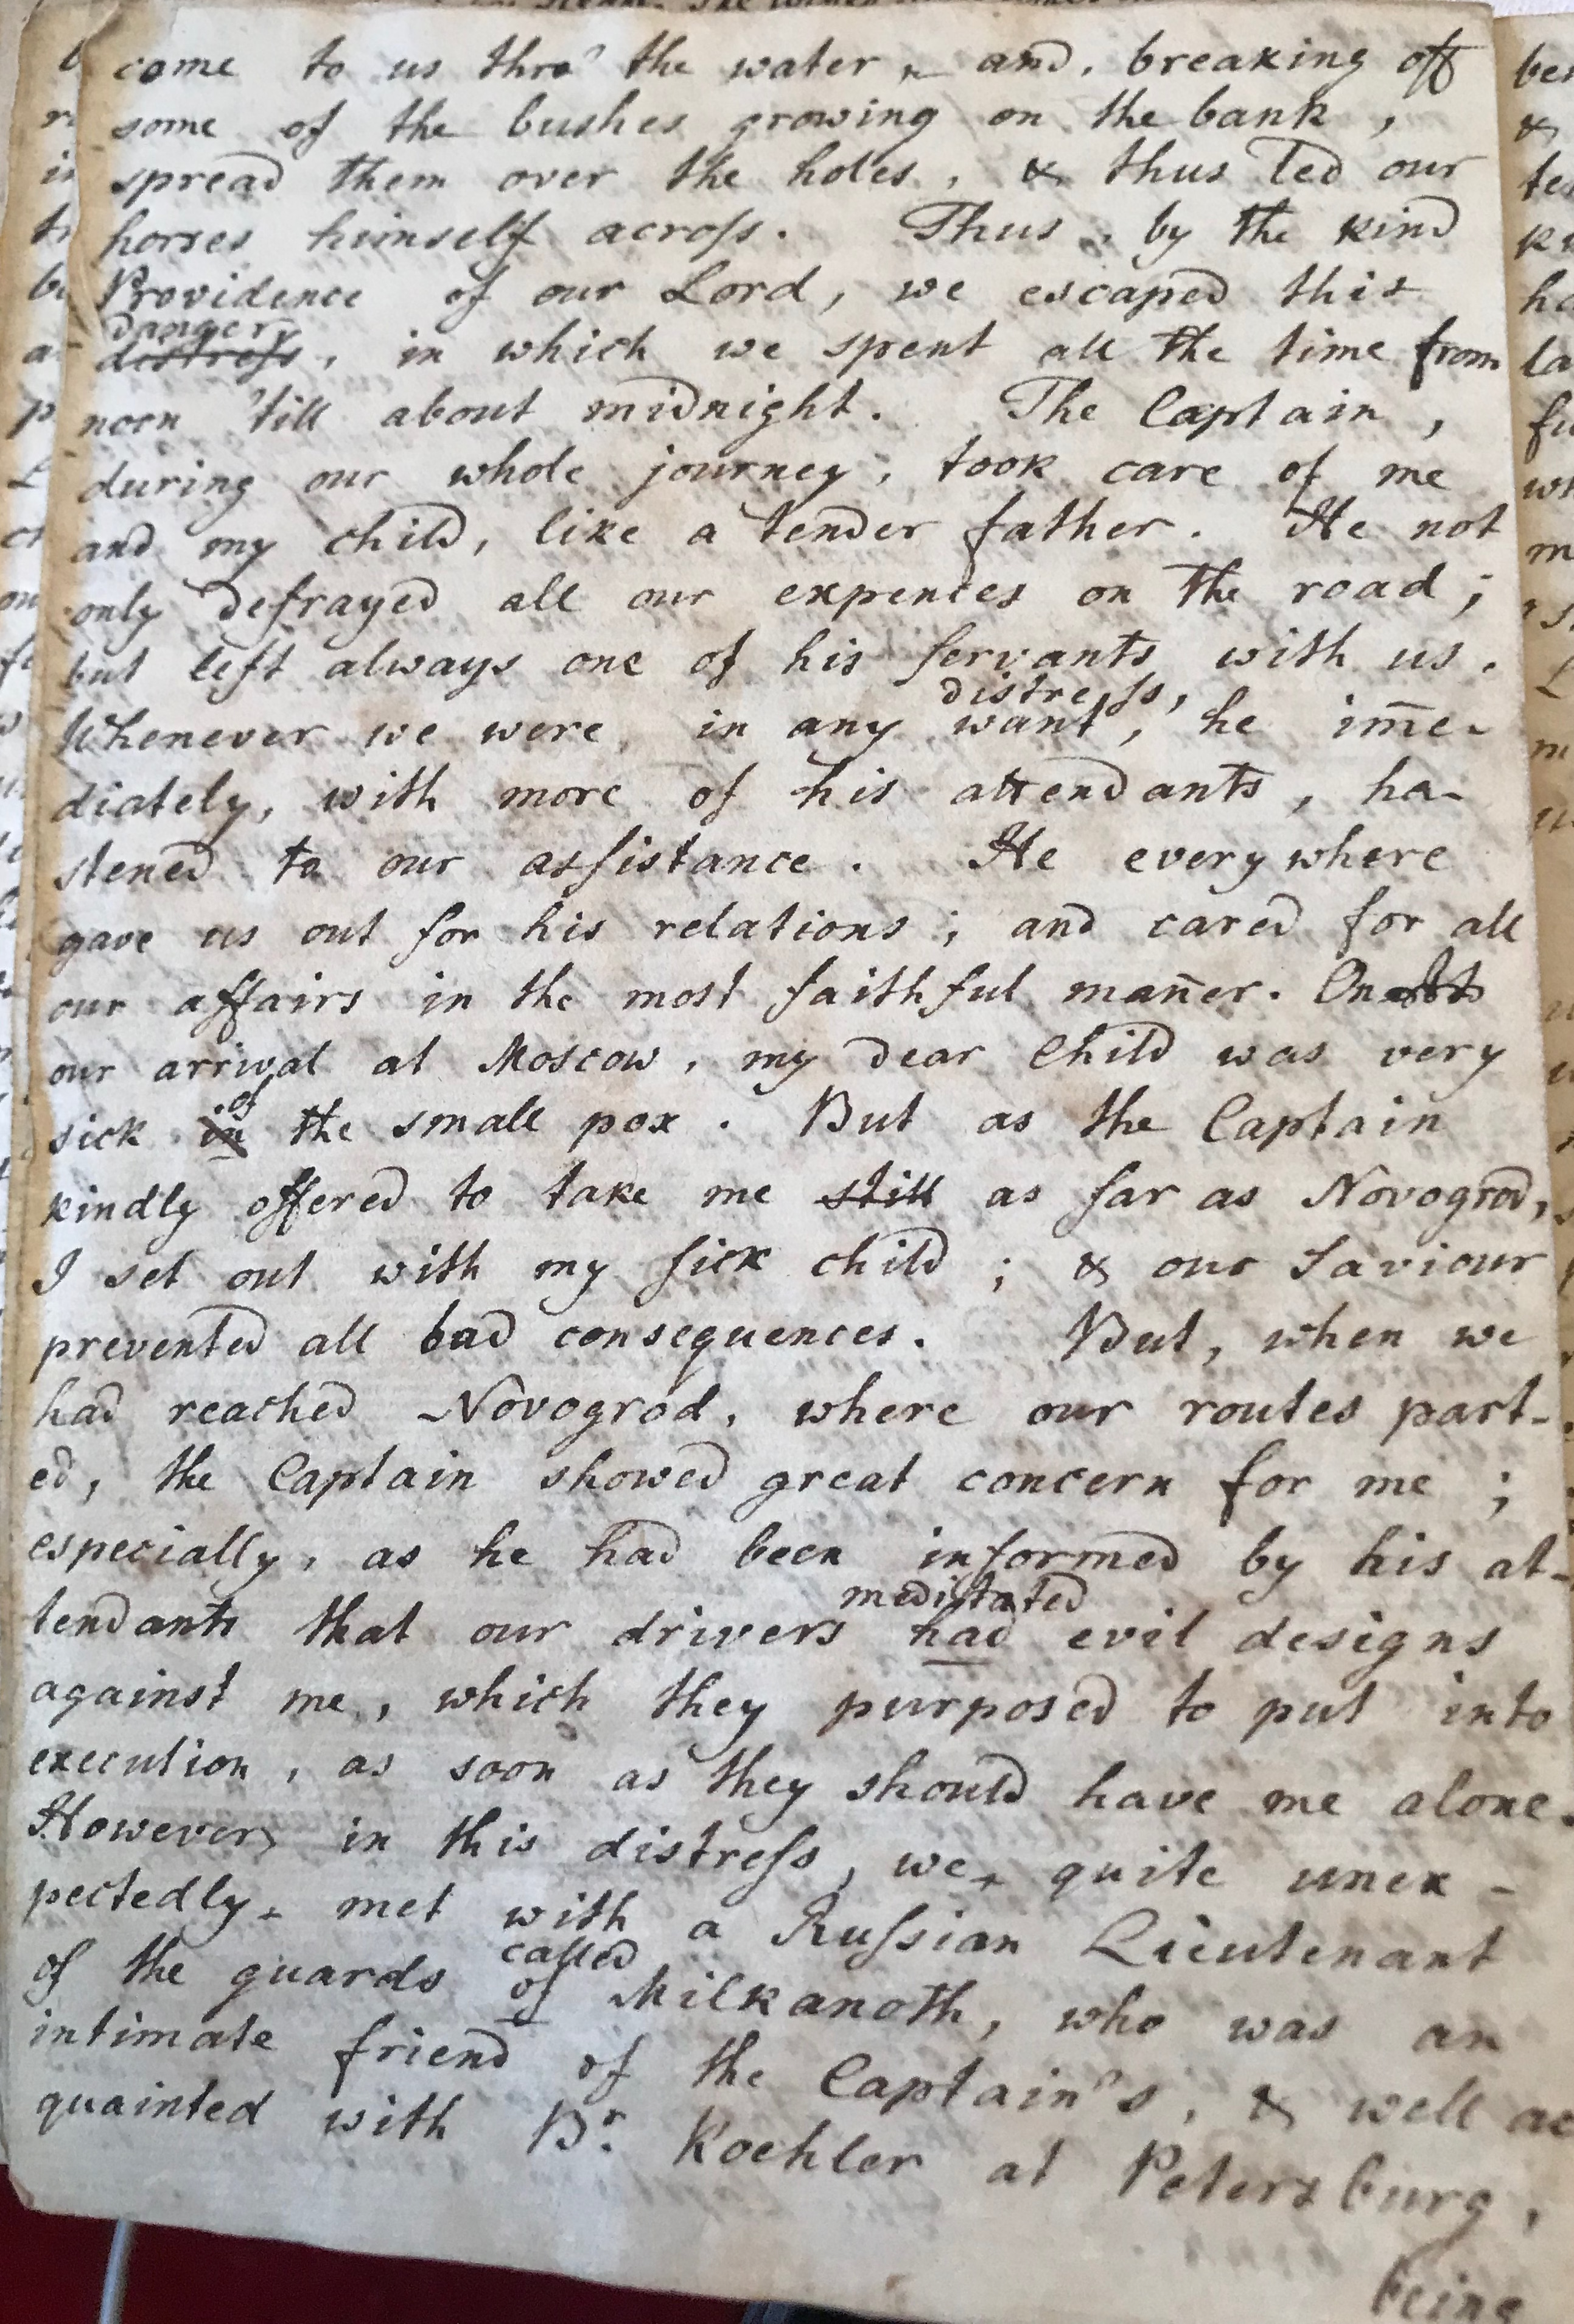 come to us thro' the water, and, breaking off
some of the bushes growing on the bank,
spread them over the holes, & thus led our
horses himself acroſs. Thus, by the kind
Providence of our Lord, we escaped this
danger
distreſs, in which we spent all the time from
noon 'till about midnight. The Captain,
during our whole journey, took care of me
and my child, like a tender father. He not
only defrayed all our expences on the road;
but left always one of his ſervants with us.
distreſs,
Whenever we were in any want, he im̅e-
diately, with more of his attendants, ha-
stened to our aſsistance. He everywhere
gave us out for his relations; and cared for all
our affairs in the most faithful man̅er. On
our arrival at Moscow, my dear Child was very
of
sick in the small pox. But as the Captain
kindly offered to take me still as far as Novogrod,
I set out with my ſick child; & our Saviour
prevented all bad consequences. But, when we
had reached Novogrod, where our routes part-
ed, the Captain showed great concern for me;
especially, as he had been informed by his at-
meditated
tendants that our drivers had evil designs
against me, which they purposed to put into
execution, as soon as they should have me alone.
However, in this distreſs, we, quite unex-
pectedly, met with a Ruſsian Lieutenant
called
of the guards of Milkanoth, who was an
intimate friend of the Captain's, & well ac
quainted with Br. Koehler at Petersburg,
being